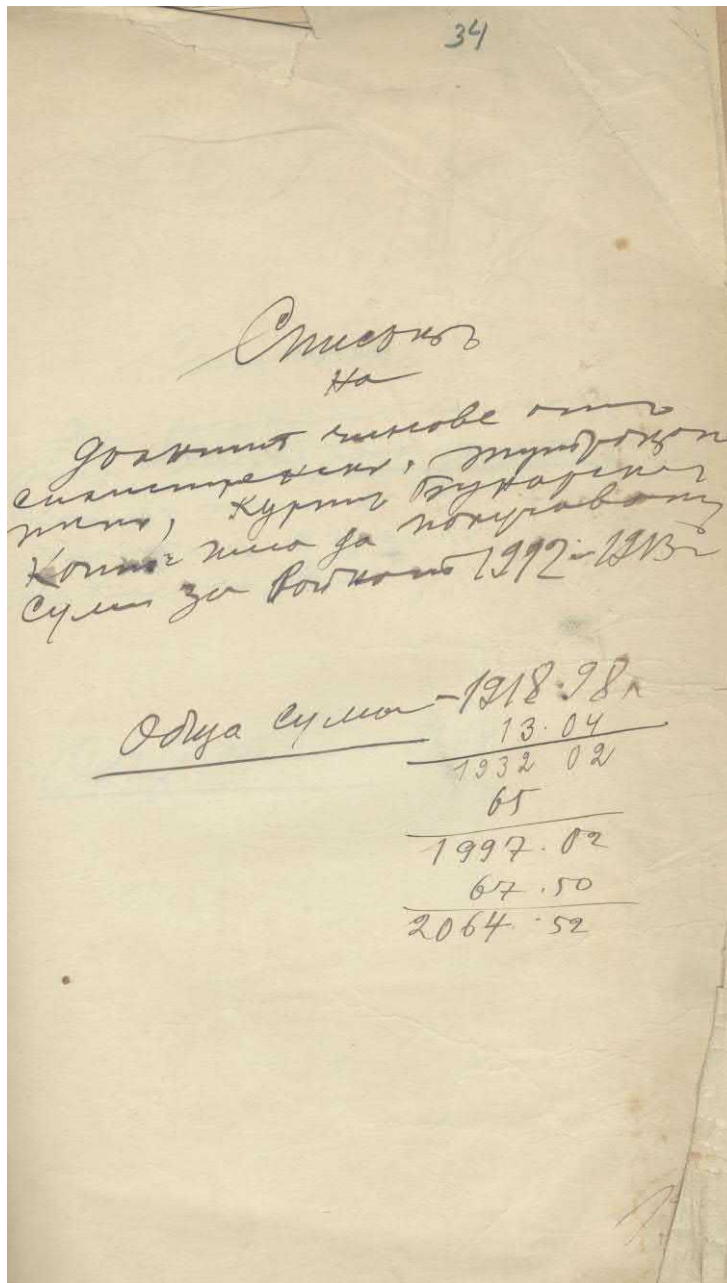 34
Списокъ
на
долнитѣ чинове отъ
силистренски,
пиля, Куртъ Бунарска
които има да получаватъ
суми за войната 1912-1913 г
Обща сума - 1918.98 л
13.04
1932 02
65
1997.02
67.50
2064.52